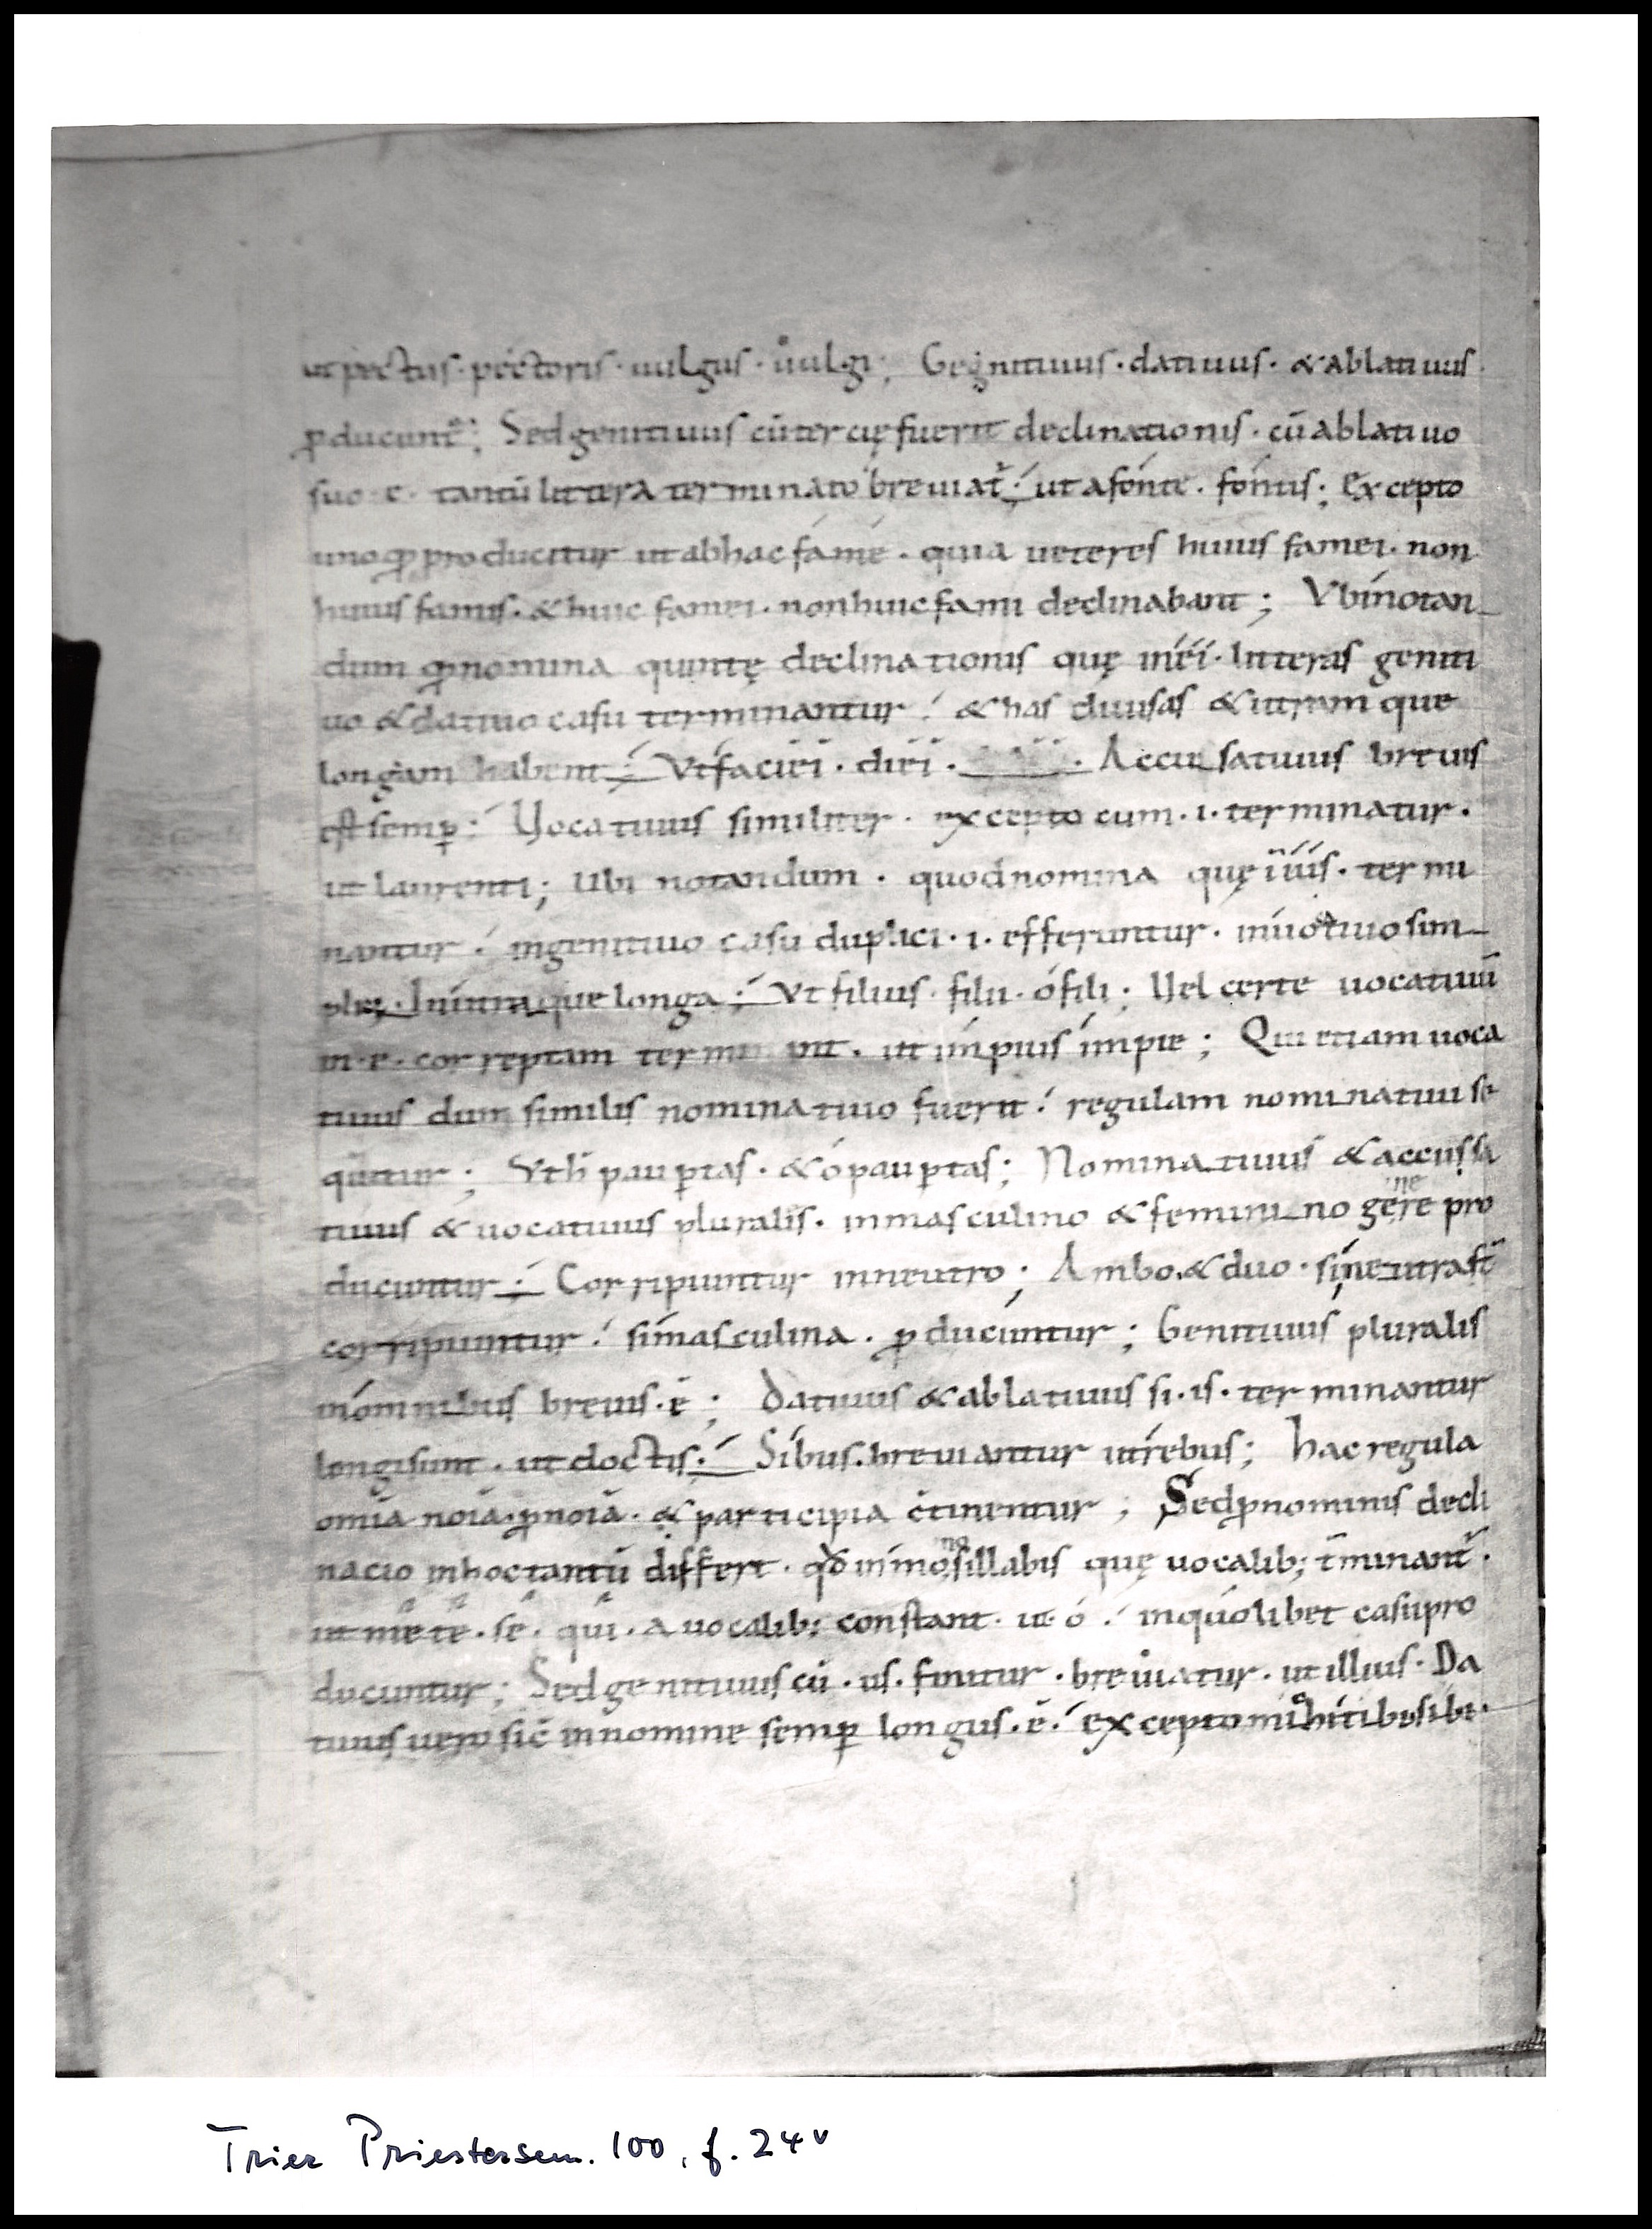 ut pectus · pectoris · uulgus · uulgi; Gegnitiuus · datiuus · & ablatiuus ·
ꝓducunt᷑; Sed genitiuus cū tercię fuerit declinationis · cū ablatiuo
suo · e · tantū littera terminato breuiat᷑ ; ut a fónte · fóntis; Excepto
uno ꝙ producitur ut ab hac fáme · quia ueteres huius famei · non
huius famis · & huic famei · non huic fami declinabant ; Vbi notan
dum ꝙ nomina quintę declinationis quę in éi · litteras geniti
uo & datiuo casu terminantur ; & has diuisas & utramque
longam habent ; Vt faciei · diei · Accussatiuus breuis
est semꝑ ; Uocatiuus similiter · excepto cum · i · terminatur ·
ut laurenti ; Ubi notandum · quod nomina quę in ius · termi
nantur ; in genitiuo casu duplici · i · efferuntur · in uocatiuo sim
plex · In utraque longa ; Vt filius · filii · ó fili ; Uel certe uocatiuū
in · e · correptam ut impius impie ; Qui etiam uoca
tiuus dum similis nominatiuo fuerit ; regulam nominatiui se
quitur ; Vt h̄ pauꝑtas · & ó pauꝑtas ; Nominatiuus & accussa
tiuus & uocatiuus pluralis · in masculino & feminino gene re pro
ducuntur ; Corripiuntur in neutro ; Ambo · & duo · si neutra st̄
corripiuntur ; si masculina · ꝓducuntur ; Genitiuus pluralis
in omnibus breuis · ē ; Datiuus & ablatiuus si · is · terminantur
longi sunt · ut doctis ; Si bus · breuiantur ut rebus ; hac regula
omīa noīa · ꝓnoīa · & participia c̄tinentur ; Sed ꝓnominis decli
nacio in hoc tantū differt · qd̄ in monosillabis quę uocalib; t̄minant᷑ ·
ut mé té · sé · qui · a uocalib; constant · ut ó ; in quolibet casu pro
ducuntur ; Sed genitiuus cū · us · finitur · breuiatur · ut illius · Da
tiuus uero sic̄ in nomine semꝑ longus · ē ; excepto mihi tibi sibi ·
Trier Priestersem. 100, f. 24v